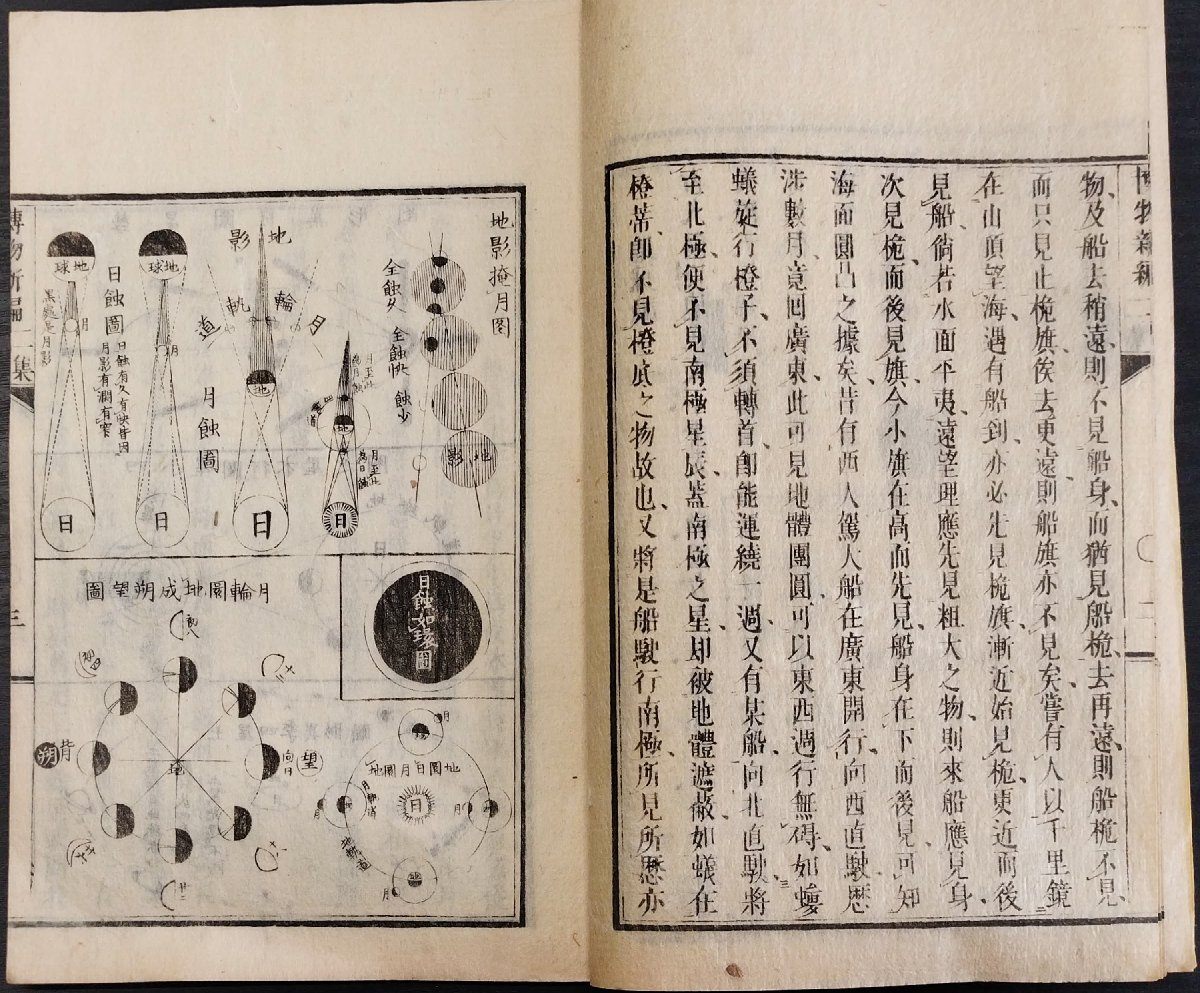 博物新編二
二
物、及船去稍遠、則不見船身、而猶見船桅、去再遠、則船桅不見、
而只見止桅旗、俟去更遠、則船旗亦不見矣、嘗有人以千里鏡
在山頂望海、遇有船到、亦必先見桅旗、漸近始見桅、更近而後
見船、倘若水面平夷、遠望理應先見粗大之物、則來船應見身、
次見桅、而後見旗、今小旗在高而先見、船身在下而後見、可知
海面圓凸之據矣、昔有西人駕大船在廣東開行、向西直駛、歷
涉數月、竟回廣東、此可見地體團圓、可以東西週行無碍、如螻
蟻旋行橙子、不須轉首、卽能運繞一週、又有某船、向北直駛、將
至北極、便不見南極星辰、蓋南極之星、却被地體遮蔽、如蟻在
橙蒂、卽不見橙底之物故也、又將是船駛行南極、所見所歷亦
地影掩月圖
全蝕久
全蝕快
蝕少
地影
月至此為月蝕
地
月至此為日蝕
日
地影
月輪軌道
地
日
月蝕圖
地球
月
日
日蝕圖
日蝕有久有快皆因
月影有濶有窄
地球
月
黑處是月影
日
日蝕如環圖
月輪圜地成朔望圖
地
望
向日
朔
背
初四
廿二
地圜日月圜地
日
月
月
月
月
地
博物新編二集
三